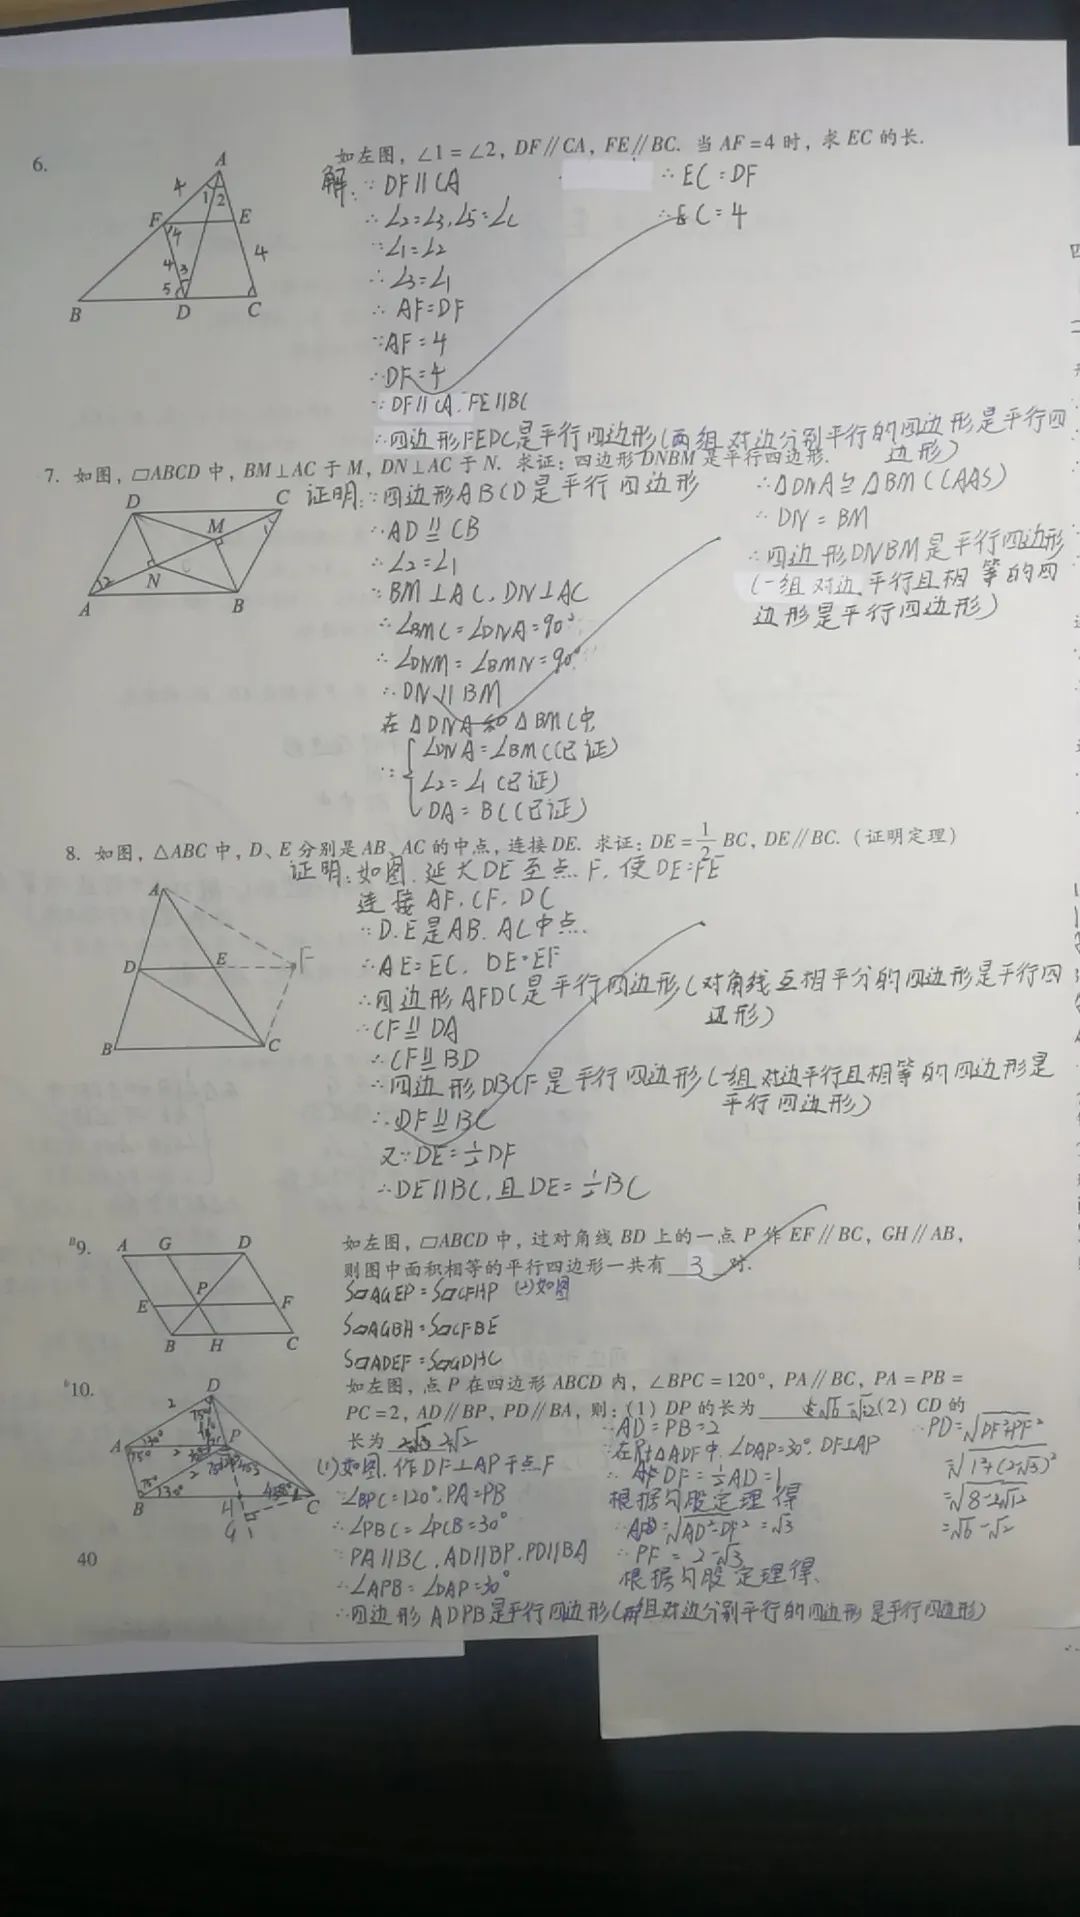 6.
如左图，∠1=∠2，DF∥CA，FE∥BC. 当 AF=4 时，求 EC 的长.
解: ∵ DF∥CA
∴ ∠2=∠3,∠5=∠C
∵∠1=∠2
∴ ∠3=∠1
∴ AF=DF
∵AF=4
∴DF=4
∵DF∥CA.FE∥BC
∴四边形FEDC是平行四边形(两组对边分别平行的四边形是平行四边形)
∴ EC=DF
∴EC=4
A
4
1
2
F
4
E
4
3
4
5
B
D
C
7. 如图，▱ABCD 中，BM⊥AC 于 M，DN⊥AC 于 N. 求证：四边形 DNBM 是平行四边形.
证明:∵四边形ABCD是平行四边形
∴AD∥CB
∴∠2=∠1
∵BM⊥AC,DN⊥AC
∴∠BMC=∠DNA=90°
∴∠DNM=∠BMN=90°
∴DN∥BM
在△DNA和△BMC中
∵{∠DNA=∠BMC(已证)
∠2=∠1(已证)
DA=BC(已证)
∴△DNA≌△BMC(AAS)
∴ DN=BM
∴四边形DNBM是平行四边形
(一组对边平行且相等的四
边形是平行四边形)
D
C
M
1
N
2
A
B
8. 如图，△ABC 中，D、E 分别是 AB、AC 的中点，连接 DE. 求证：DE=1/2 BC，DE∥BC.（证明定理）
证明:如图.延长DE至点F,使DE=FE
连接AF.CF.DC
∵D.E是AB.AC中点.
∴AE=EC, DE=EF
∴四边形AFDC是平行四边形(对角线互相平分的四边形是平行四
边形)
∴CF∥DA
∴CF∥BD
∴四边形DBCF是平行四边形(一组对边平行且相等的四边形是
平行四边形)
∴DF∥BC
又∵DE=½DF
∴DE∥BC,且DE=½BC
A
D
E
F
B
C
9.
如左图，▱ABCD 中，过对角线 BD 上的一点 P 作 EF∥BC，GH∥AB，
则图中面积相等的平行四边形一共有 3 对.
S▱AGEP=S▱CFHP (2)如图
S▱AGBH=S▱CFBE
S▱ADEF=S▱GDHC
A
G
D
P
E
F
B
H
C
10.
如左图，点 P 在四边形 ABCD 内，∠BPC=120°，PA∥BC，PA=PB=
PC=2，AD∥BP，PD∥BA，则：(1) DP 的长为 √6-√2 (2) CD 的
长为 2√2
(1)如图.作DF⊥AP于点F
∵∠BPC=120°,PA=PB
∴∠PBC=∠PCB=30°
∵PA∥BC,AD∥BP,PD∥BA
∴∠APB=∠DAP=30°
∴四边形ADPB是平行四边形(两组对边分别平行的四边形是平行四边形)
∴AD=PB=2
∵在Rt△ADF中.∠DAP=30°.DF⊥AP
∴ DF=½AD=1
根据勾股定理得
=√AD²-DF²=√3
∴PF=2-√3
根据勾股定理得.
∴PD=√DF²+PF²
=√1²+(2-√3)²
=√8-2√12
=√6-√2
D
2
A
P
2
2
B
H
C
G
40